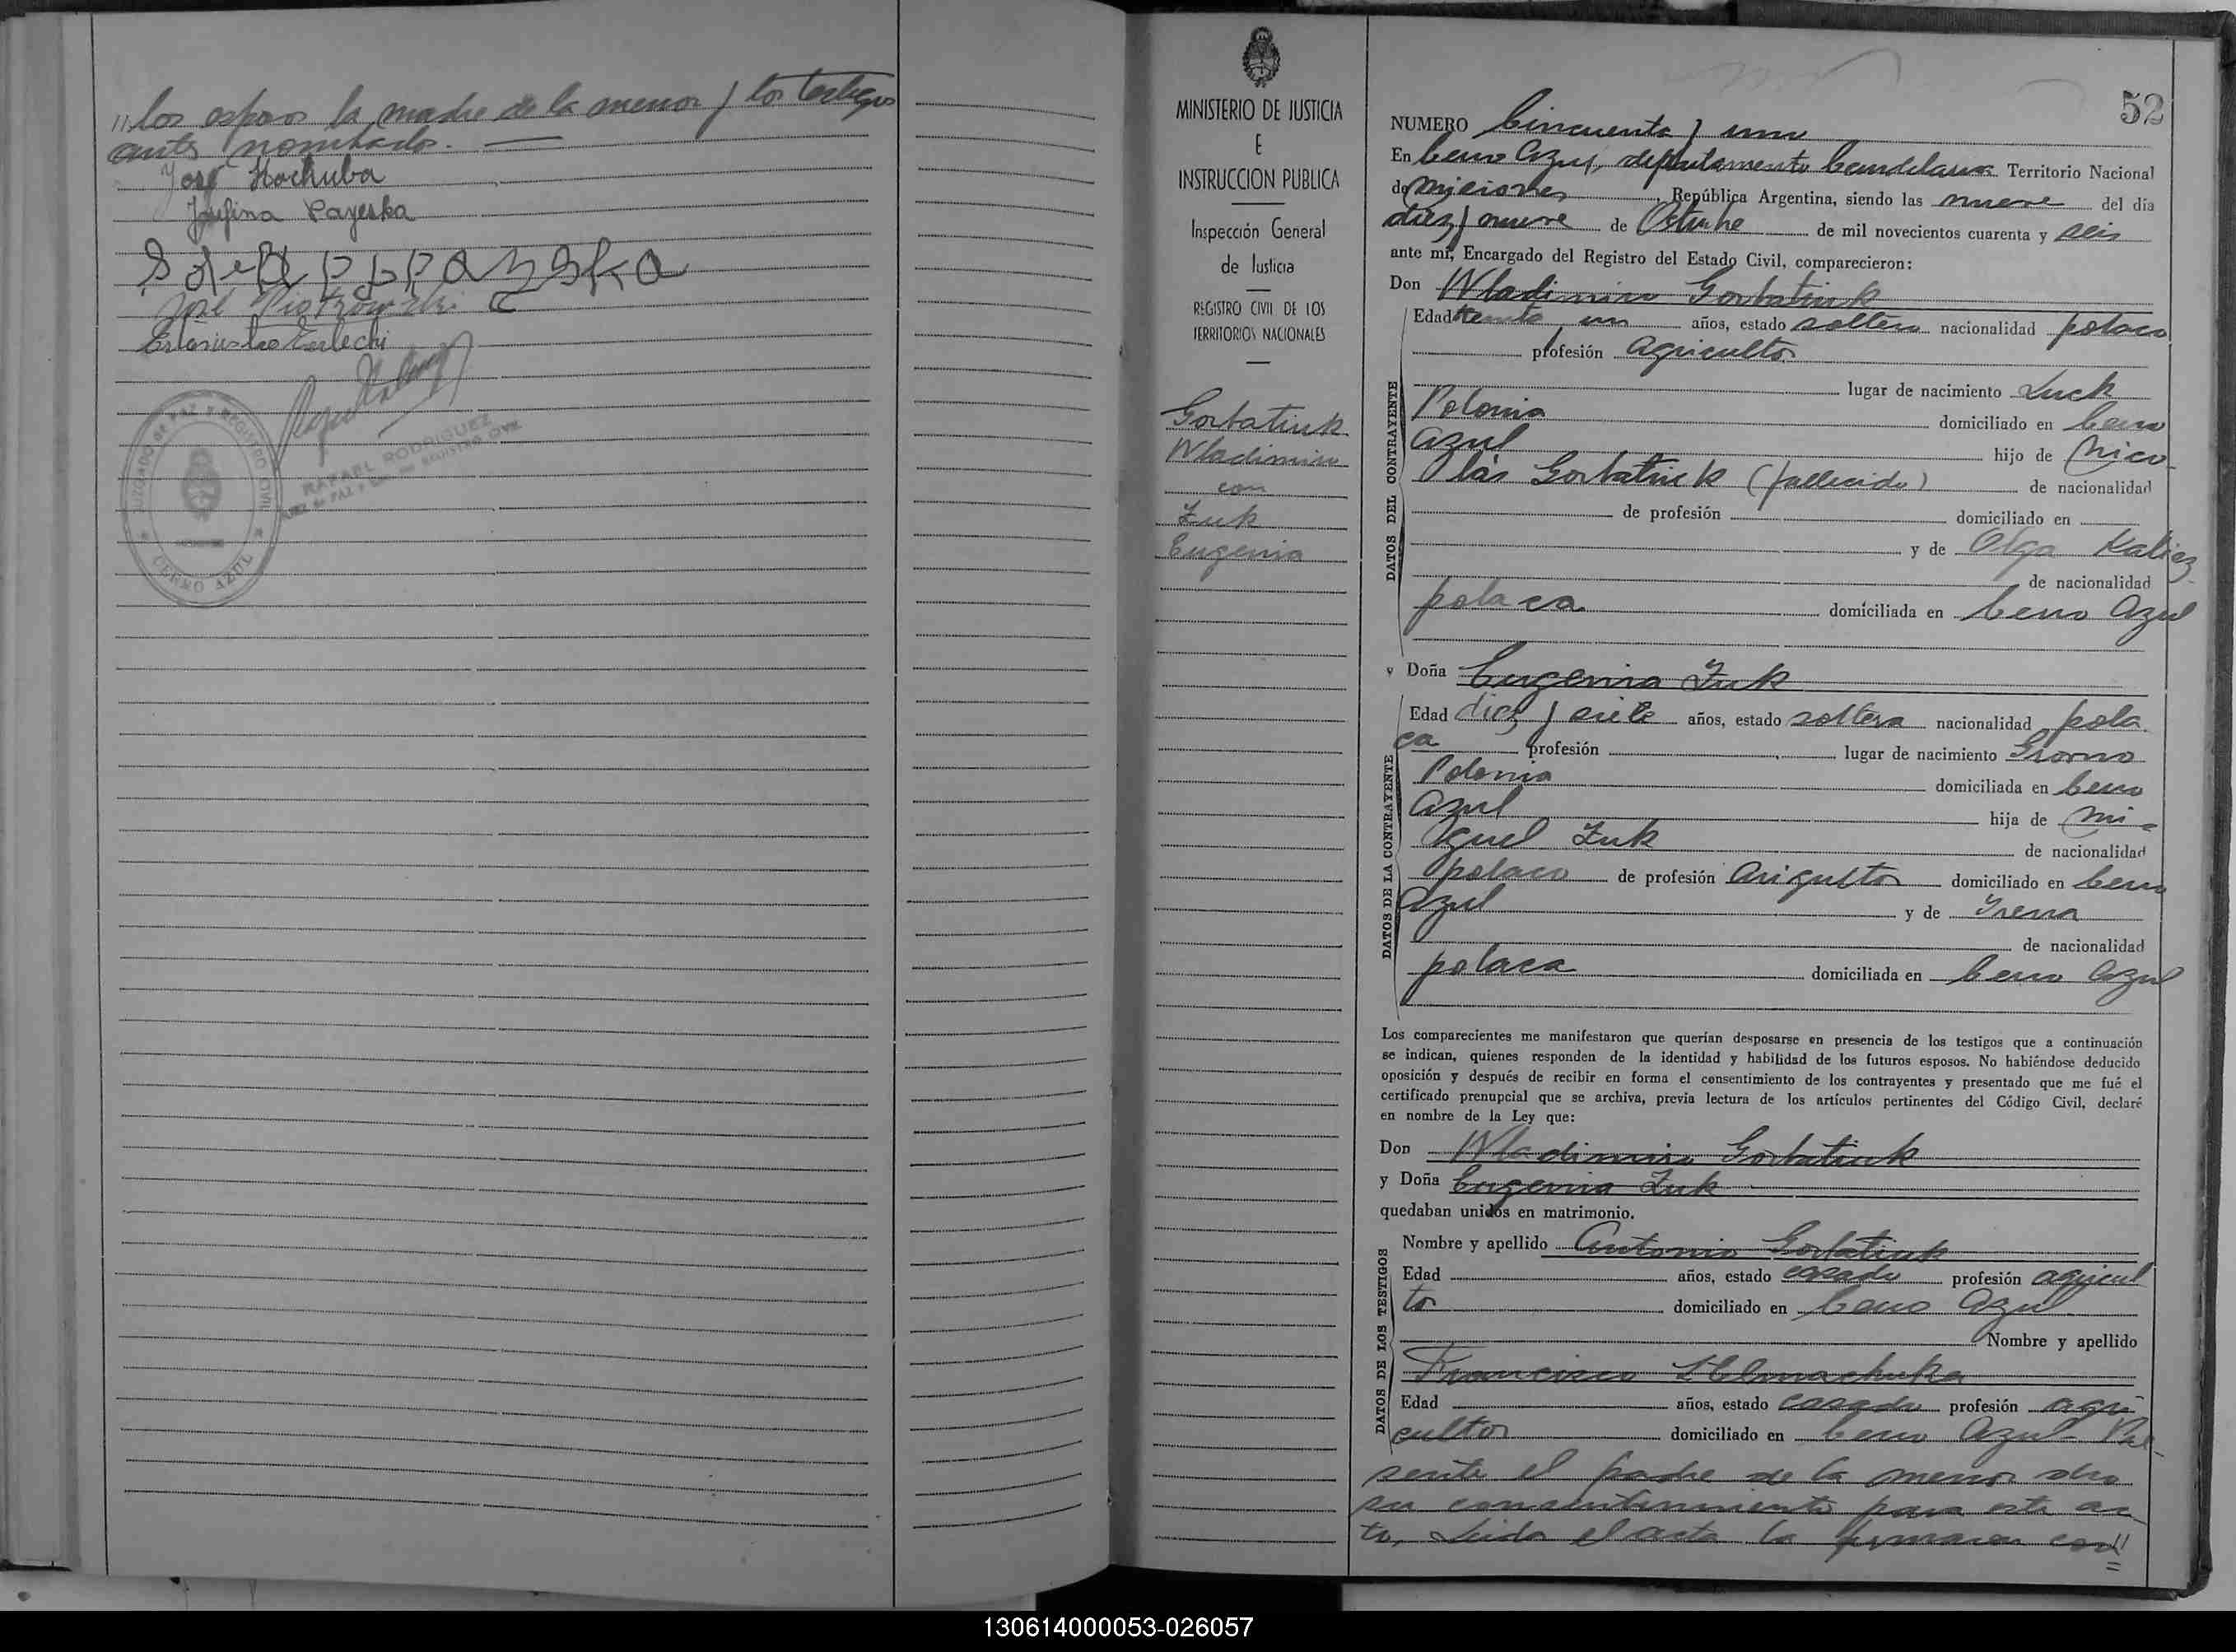 // los esposos la madre de la menor y los testigos
antes nombrados.
José Hochuba
Josefina Payeska
José Piotrowski
Estanislao Terlechi
JUZGADO DE PAZ Y REGISTRO CIVIL
CERRO AZUL
RAFAEL RODRIGUEZ
JUEZ DE PAZ Y ENC. DEL REGISTRO CIVIL
MINISTERIO DE JUSTICIA
E
INSTRUCCION PUBLICA
Inspección General
de Justicia
REGISTRO CIVIL DE LOS
TERRITORIOS NACIONALES
Gorbatiuk
Wladimiro
con
Zuk
Eugenia
52
NUMERO Cincuenta y uno
En Cerro Azul, departamento Candelaria Territorio Nacional
de Misiones República Argentina, siendo las nueve del día
diez y nueve de Octubre de mil novecientos cuarenta y seis
ante mí, Encargado del Registro del Estado Civil, comparecieron:
Don Wladimiro Gorbatiuk
DATOS DEL CONTRAYENTE
Edad treinta un años, estado soltero nacionalidad polaco
profesión agricultor
lugar de nacimiento Luck
Polonia domiciliado en Cerro
Azul hijo de Nico-
lás Gorbatiuk (fallecido) de nacionalidad
de profesión domiciliado en
y de Olga Kaliez
de nacionalidad
polaca domiciliada en Cerro Azul
y Doña Eugenia Zuk
DATOS DE LA CONTRAYENTE
Edad diez y siete años, estado soltera nacionalidad pola
ca profesión lugar de nacimiento
Polonia domiciliada en Cerro
Azul hija de Mi-
guel Zuk de nacionalidad
polaco de profesión arigultor domiciliado en Cerro
Azul y de Irena
de nacionalidad
polaca domiciliada en Cerro Azul
Los comparecientes me manifestaron que querían desposarse en presencia de los testigos que a continuación
se indican, quienes responden de la identidad y habilidad de los futuros esposos. No habiéndose deducido
oposición y después de recibir en forma el consentimiento de los contrayentes y presentado que me fué el
certificado prenupcial que se archiva, previa lectura de los artículos pertinentes del Código Civil, declaré
en nombre de la Ley que:
Don Wladimiro Gorbatiuk
y Doña Eugenia Zuk
quedaban unidos en matrimonio.
DATOS DE LOS TESTIGOS
Nombre y apellido Antonio Gorbatiuk
Edad años, estado casado profesión agricul
tor domiciliado en Cerro Azul
Nombre y apellido
Francisco
Edad años, estado casado profesión agri-
cultor domiciliado en Cerro Azul Pre-
sente el padre de la menor dio
su consentimiento para este ac
to, Leida el acta la firmaron con //
130614000053-026057